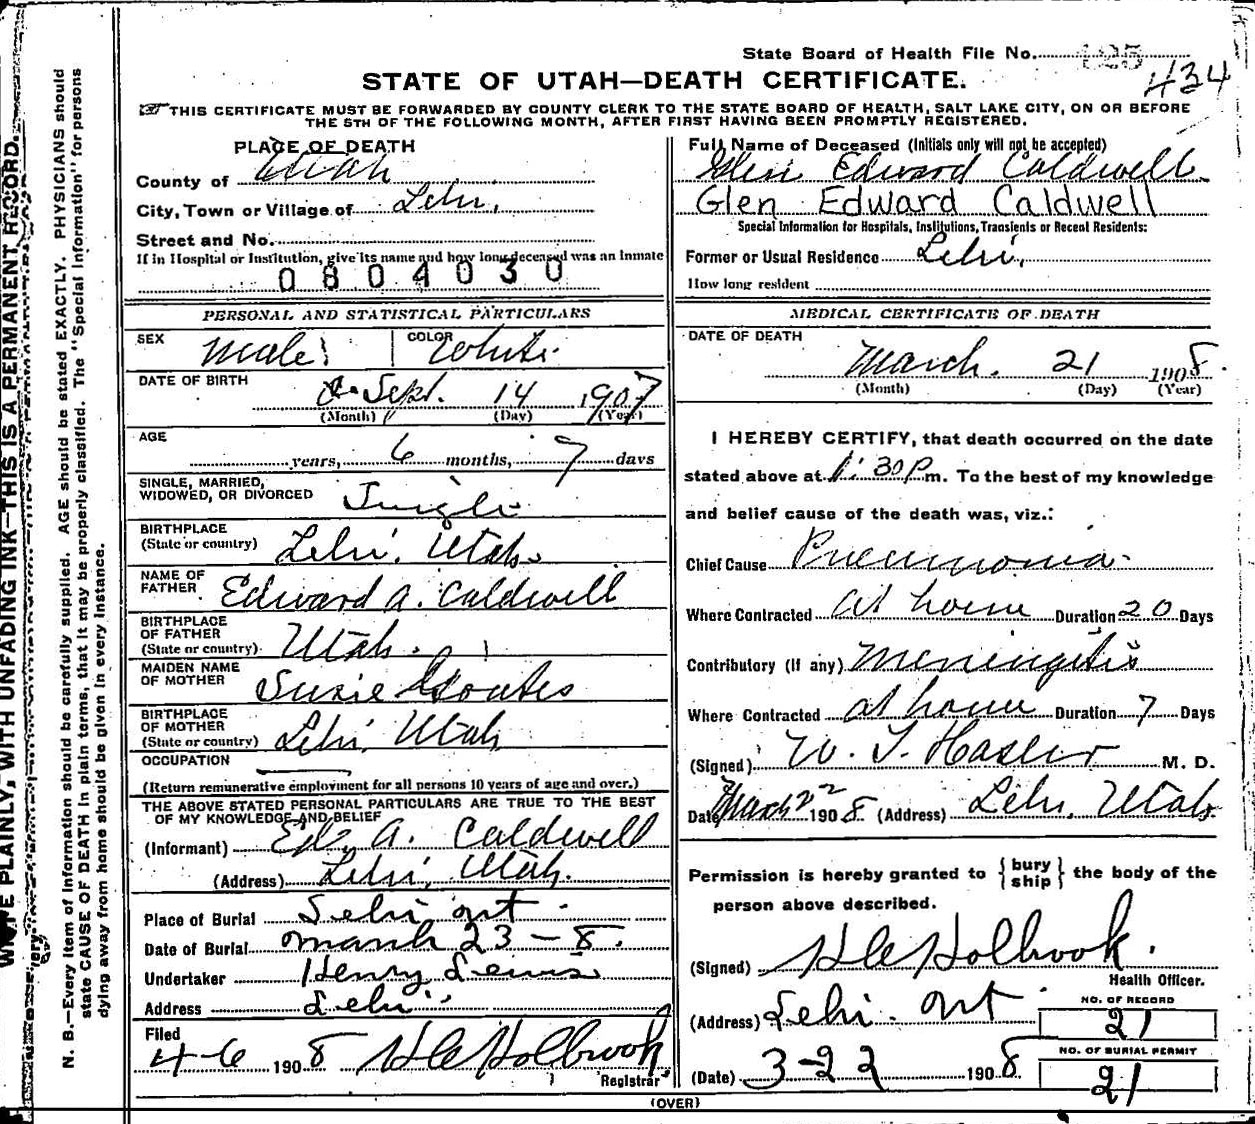 State Board of Health File No. 125
434
STATE OF UTAH—DEATH CERTIFICATE.
THIS CERTIFICATE MUST BE FORWARDED BY COUNTY CLERK TO THE STATE BOARD OF HEALTH, SALT LAKE CITY, ON OR BEFORE
THE 5TH OF THE FOLLOWING MONTH, AFTER FIRST HAVING BEEN PROMPTLY REGISTERED.
PLACE OF DEATH
County of Utah
City, Town or Village of Lehi,
Street and No.
If in Hospital or Institution, give its name and how long deceased was an inmate
0804030
Full Name of Deceased (Initials only will not be accepted)
Glen Edward Caldwell
Glen Edward Caldwell
Special Information for Hospitals, Institutions, Transients or Recent Residents:
Former or Usual Residence Lehi,
How long resident
PERSONAL AND STATISTICAL PARTICULARS
SEX Male COLOR White
DATE OF BIRTH
Sept. 14 1907
(Month) (Day) (Year)
AGE
years, 6 months, 7 days
SINGLE, MARRIED,
WIDOWED, OR DIVORCED Single
BIRTHPLACE
(State or country) Lehi, Utah
NAME OF
FATHER Edward A. Caldwell
BIRTHPLACE
OF FATHER
(State or country) Utah.
MAIDEN NAME
OF MOTHER Susie Coates
BIRTHPLACE
OF MOTHER
(State or country) Lehi, Utah
OCCUPATION
(Return remunerative employment for all persons 10 years of age and over.)
THE ABOVE STATED PERSONAL PARTICULARS ARE TRUE TO THE BEST
OF MY KNOWLEDGE AND BELIEF
(Informant) Ed. A. Caldwell
(Address) Lehi, Utah.
Place of Burial Lehi
Date of Burial March 23-8.
Undertaker Henry Lewis
Address Lehi
Filed
4-6 1908 Holbrook
Registrar
MEDICAL CERTIFICATE OF DEATH
DATE OF DEATH
March. 21 1908.
(Month) (Day) (Year)
I HEREBY CERTIFY, that death occurred on the date
stated above at 1:30 P.m. To the best of my knowledge
and belief cause of the death was, viz.:
Chief Cause Pneumonia
Where Contracted At home Duration 20 Days
Contributory (If any) Meningitis
Where Contracted at home Duration 7 Days
(Signed) W. T. Hasler M. D.
Date March 22 1908 (Address) Lehi, Utah.
Permission is hereby granted to {bury
ship} the body of the
person above described.
(Signed) Holbrook.
Health Officer.
(Address) Lehi.
NO. OF RECORD
21
(Date) 3-22 1908
NO. OF BURIAL PERMIT
21
(OVER)
N. B.—Every item of information should be carefully supplied. AGE should be stated EXACTLY. PHYSICIANS should
state CAUSE OF DEATH in plain terms, that it may be properly classified. The "Special Information" for persons
dying away from home should be given in every instance.
WRITE PLAINLY, WITH UNFADING INK—THIS IS A PERMANENT RECORD.